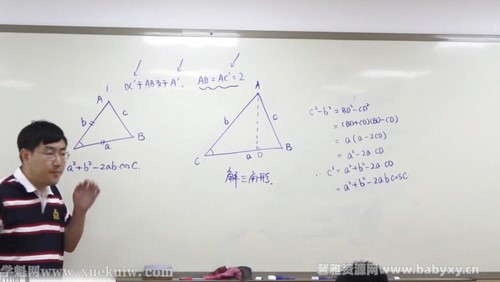 AD=AC'=2
A
b
c
B
a
a²+b²-2abcosC.
A
b
c
C
a
D
B
解三角形.
c²-b²=BD²-CD²
=(BD+CD)(BD-CD)
=a(a-2CD)
=a²-2aCD
∴ c²=a²+b²-2aCD
=a²+b²-2abcosC
学魁网www.xuekuiw.com
馨雅资源网www.babyxy.cn